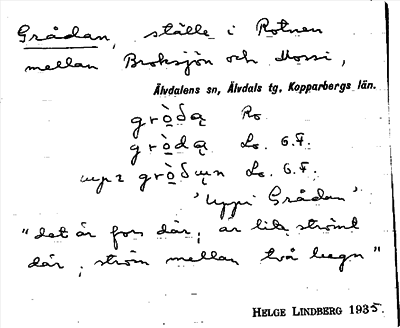 Grådan, ställe i Rotnen
mellan Broksjön och Mossi,
Älvdalens sn, Älvdals tg, Kopparbergs län.
grò̲dą Ro.
grò̲dą Lo. G.F.
upι grò̲dųn Lo. G.F.
'uppi Grådan'
"det är fors där, är lite strömt
där, ström mellan två
HELGE LINDBERG 1935.